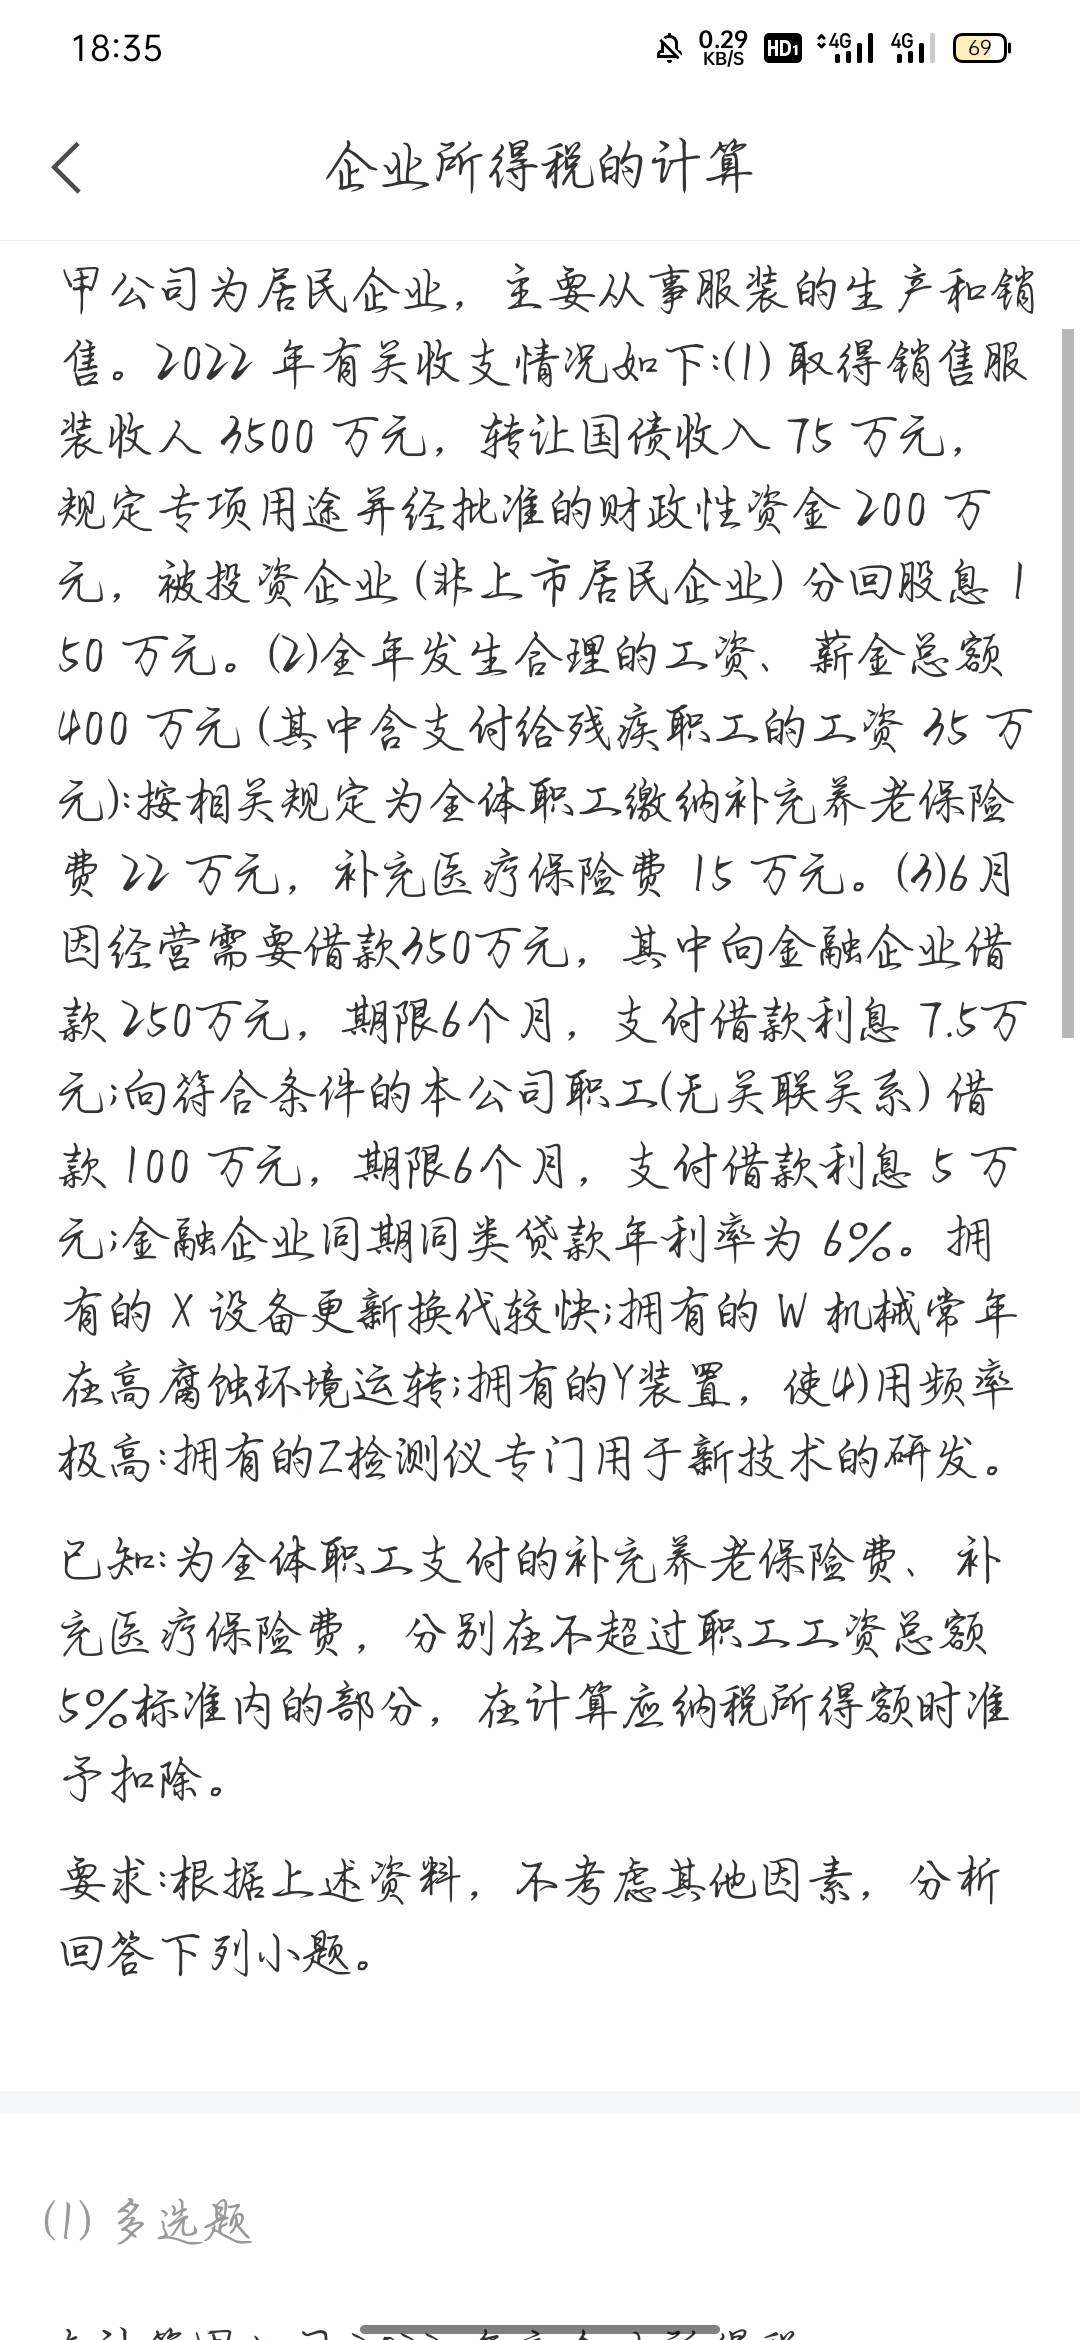 18:35
0.29
KB/S
HD1
4G
4G
69
企业所得税的计算
甲公司为居民企业，主要从事服装的生产和销
售。2022 年有关收支情况如下:(1) 取得销售服
装收人 3500 万元，转让国债收入 75 万元，
规定专项用途并经批准的财政性资金 200 万
元，被投资企业 (非上市居民企业) 分回股息 1
50 万元。(2)全年发生合理的工资、薪金总额
400 万元 (其中含支付给残疾职工的工资 35 万
元):按相关规定为全体职工缴纳补充养老保险
费 22 万元，补充医疗保险费 15 万元。(3)6月
因经营需要借款350万元，其中向金融企业借
款 250万元，期限6个月，支付借款利息 7.5万
元;向符合条件的本公司职工(无关联关系) 借
款 100 万元，期限6个月，支付借款利息 5 万
元;金融企业同期同类贷款年利率为 6%。拥
有的 X 设备更新换代较快;拥有的 W 机械常年
在高腐蚀环境运转;拥有的Y装置，使4)用频率
极高:拥有的Z检测仪专门用于新技术的研发。
已知:为全体职工支付的补充养老保险费、补
充医疗保险费，分别在不超过职工工资总额
5%标准内的部分，在计算应纳税所得额时准
予扣除。
要求:根据上述资料，不考虑其他因素，分析
回答下列小题。
(1) 多选题